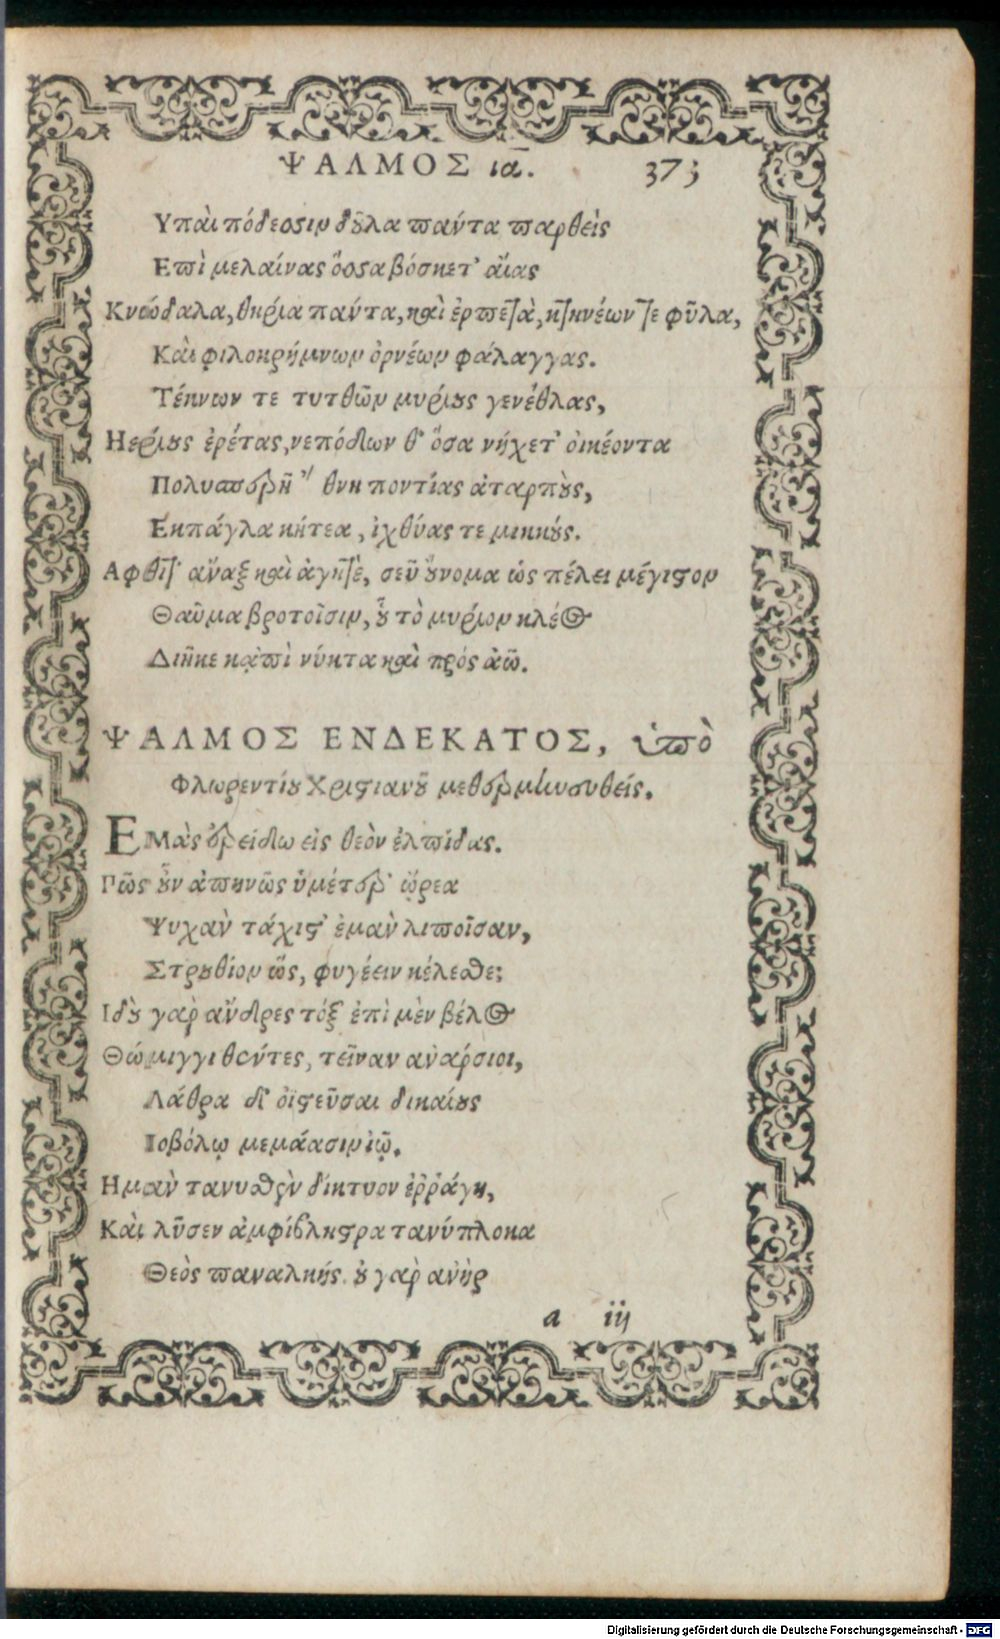 ΨΑΛΜΟΣ ια. 373
Υπαὶ πόδεσσιν δοῦλα πάντα παρθεὶς
Επὶ μελαίνας ὅσσα βόσκετ' αἴας
Κνώδαλα, θηρία πάντα, καὶ ἑρπετὰ, κτηνέων τε φῦλα,
Καὶ φιλοκρήμνων ὀρνέων φάλαγγας.
Τέκνων τε τυτθῶν μυρίους γενέθλας,
Ηερίους ἐρέτας, νεπόδων θ' ὅσα νήχετ' οἰκέοντα
Πολυπερῆ θνη ποντίας ἀταρποὺς,
Εκπάγλα κήτεα, ἰχθύας τε μικκούς.
Αφθιτ' ἄναξ καὶ ἀγητὲ, σεῦ οὔνομα ὡς πέλει μέγιστον
Θαῦμα βροτοῖσιν, οὗ τὸ μυρίον κλέος
Διῆκε κἀπὶ νύκτα καὶ πρός ἀῶ.
ΨΑΛΜΟΣ ΕΝΔΕΚΑΤΟΣ, ὑπὸ
Φλωρεντίου Χριστιανοῦ μεθερμηνευθείς.
ΕΜὰς ἐρείδω εἰς θεὸν ἐλπίδας.
Πῶς οὖν ἀπηνῶς ὑμέτερ' ὤρεα
Ψυχὰν τάχιστ' ἐμὰν λιποῖσαν,
Στρουθίον ὥς, φυγέειν κέλεσθε;
Ιδοὺ γὰρ ἄνδρες τόξ' ἐπὶ μὲν βέλος
Θώμιγγι θέντες, τεῖναν ἀνάρσιοι,
Λάθρα δ' ὀϊστεῦσαι δικαίους
Ιοβόλῳ μεμάασιν ἰῷ.
Ημὰν τανυσθὲν δίκτυον ἐῤῥάγη,
Καὶ λῦσεν ἀμφίβληστρα τανύπλοκα
Θεὸς παναλκής. οὐ γὰρ ἀνὴρ
a iij
Digitalisierung gefördert durch die Deutsche Forschungsgemeinschaft - DFG